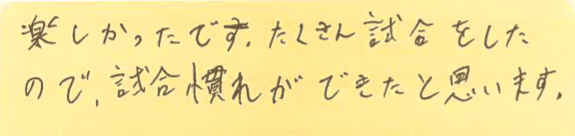 楽しかったです。たくさん試合をした
ので、試合慣れができたと思います。